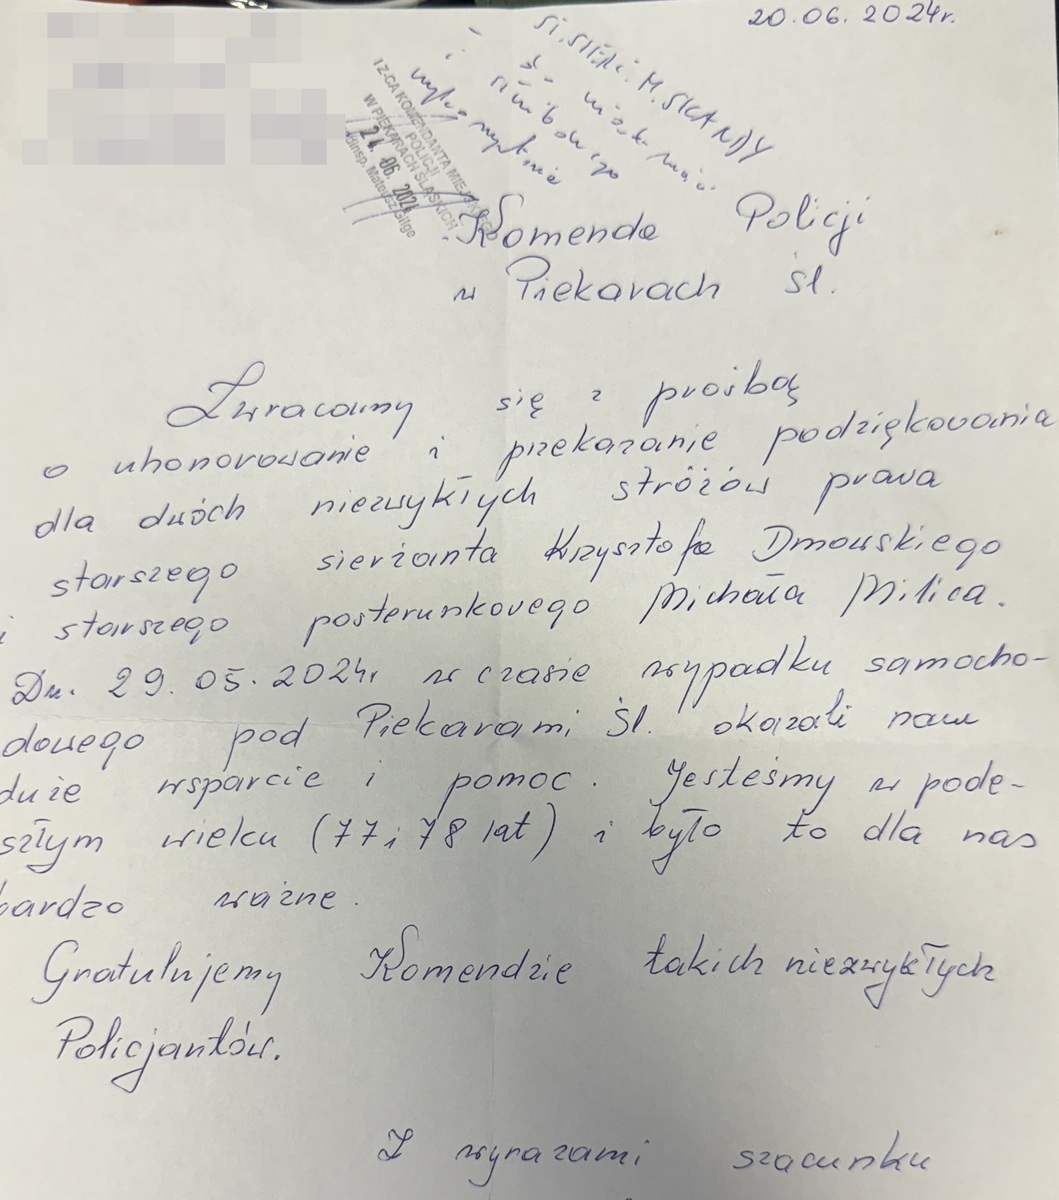 20.06.2024r.
M. SKANDY
I Z-CA KOMENDANTA MIEJSKIEGO
POLICJI
W PIEKARACH ŚLĄSKICH
24. 06. 2024
Komenda Policji
w Piekarach Śl.
Zwracamy się z prośbą
o uhonorowanie i przekazanie podziękowania
dla dwóch niezwykłych stróżów prawa
starszego sierżanta Krzysztofa Dmowskiego
i starszego posterunkowego Michała Milica.
Dn. 29.05.2024r w czasie wypadku samocho-
dowego pod Piekarami Śl. okazali nam
duże wsparcie i pomoc. Jesteśmy w pode-
szłym wieku (77 i 78 lat) i było to dla nas
bardzo ważne.
Gratulujemy Komendzie takich niezwykłych
Policjantów.
Z wyrazami szacunku